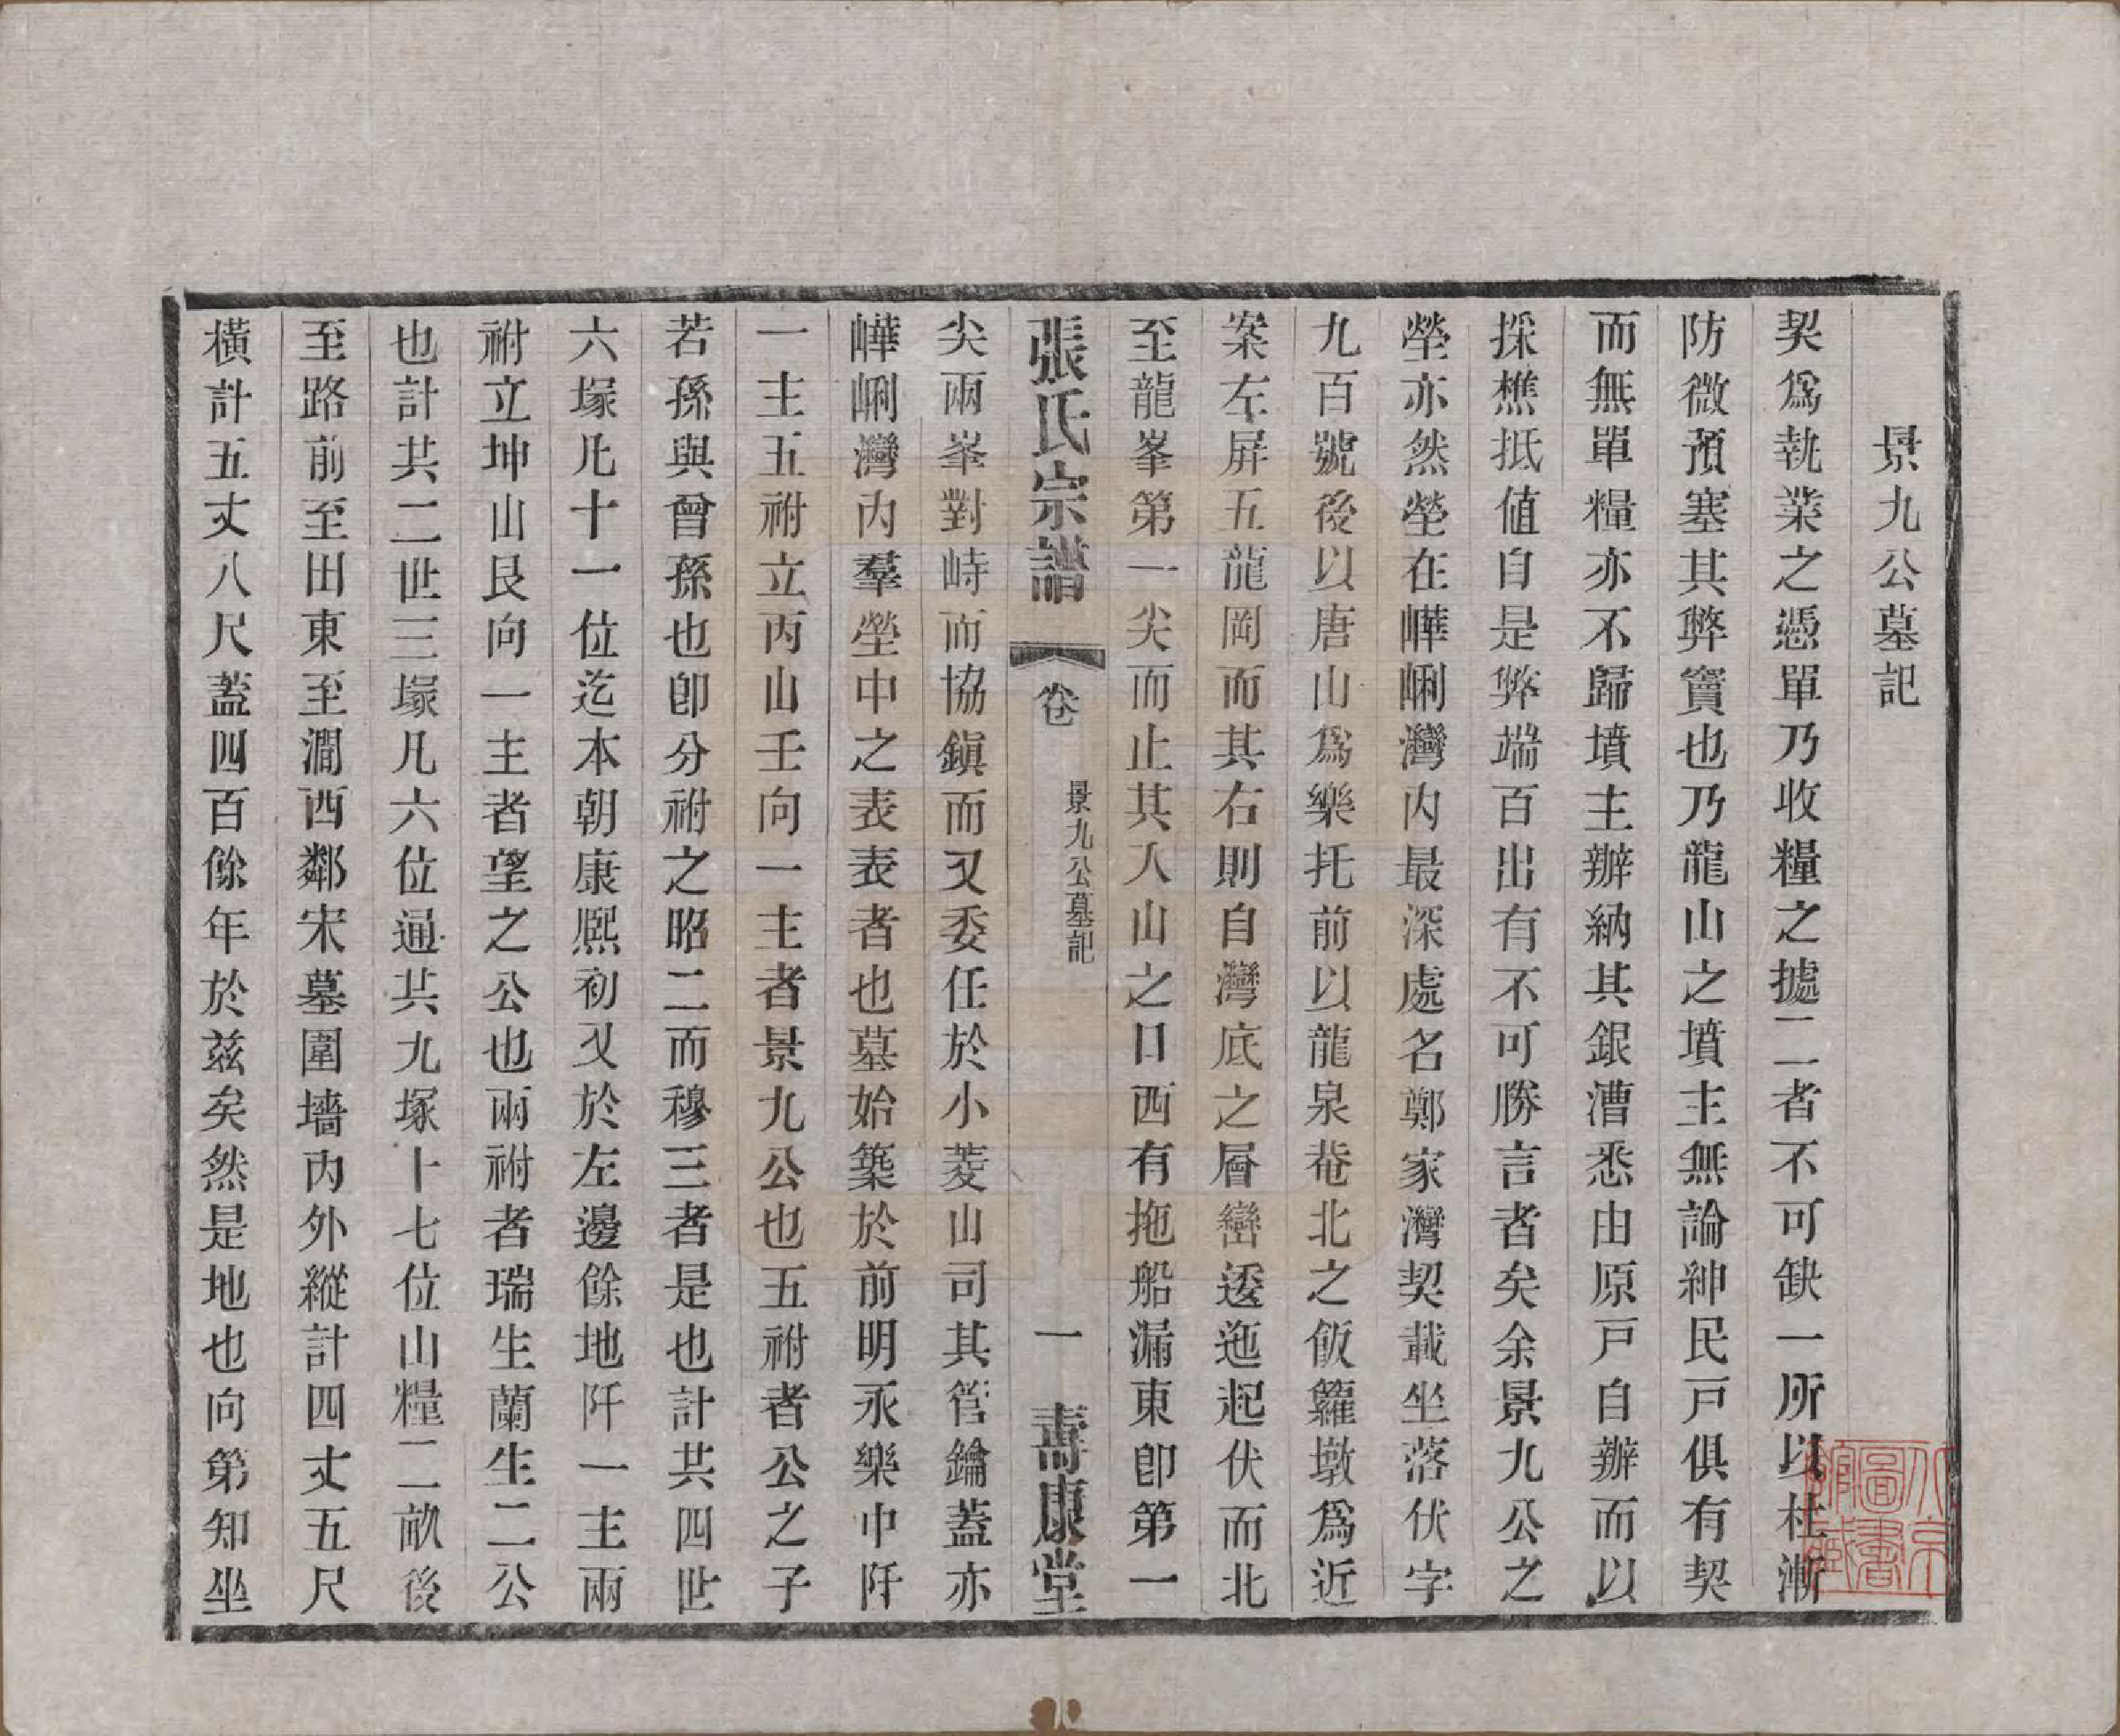 景九公墓記
契爲執業之憑單乃收糧之據二者不可缺一所以杜漸
防微預塞其弊竇也乃龍山之墳主無論紳民戸俱有契
而無單糧亦不歸墳主辦納其銀漕悉由原戸自辦而以
採樵抵值自是弊端百出有不可勝言者矣余景九公之
塋亦然塋在嶂峢灣内最深處名鄭家灣契載坐落伏字
九百號後以唐山爲樂托前以龍泉菴北之飯籮墩爲近
案左屏五龍岡而其右則自灣底之層巒逶迤起伏而北
至龍峯第一尖而止其入山之口西有拖船漏東卽第一
張氏宗譜
卷
景九公墓記
一
壽康堂
尖兩峯對峙而協鎭而又委任於小菱山司其管鑰蓋亦
嶂峢灣内羣塋中之表表者也墓始築於前明永樂中阡
一主五祔立丙山壬向一主者景九公也五祔者公之子
若孫與曾孫也卽分祔之昭二而穆三者是也計共四世
六塚凡十一位迄本朝康熙初又於左邊餘地阡一主兩
祔立坤山艮向一主者望之公也兩祔者瑞生蘭生二公
也計共二世三塚凡六位通共九塚十七位山糧二畝後
至路前至田東至澗西鄰宋墓圍墻内外縱計四丈五尺
橫計五丈八尺蓋四百餘年於兹矣然是地也向第知坐